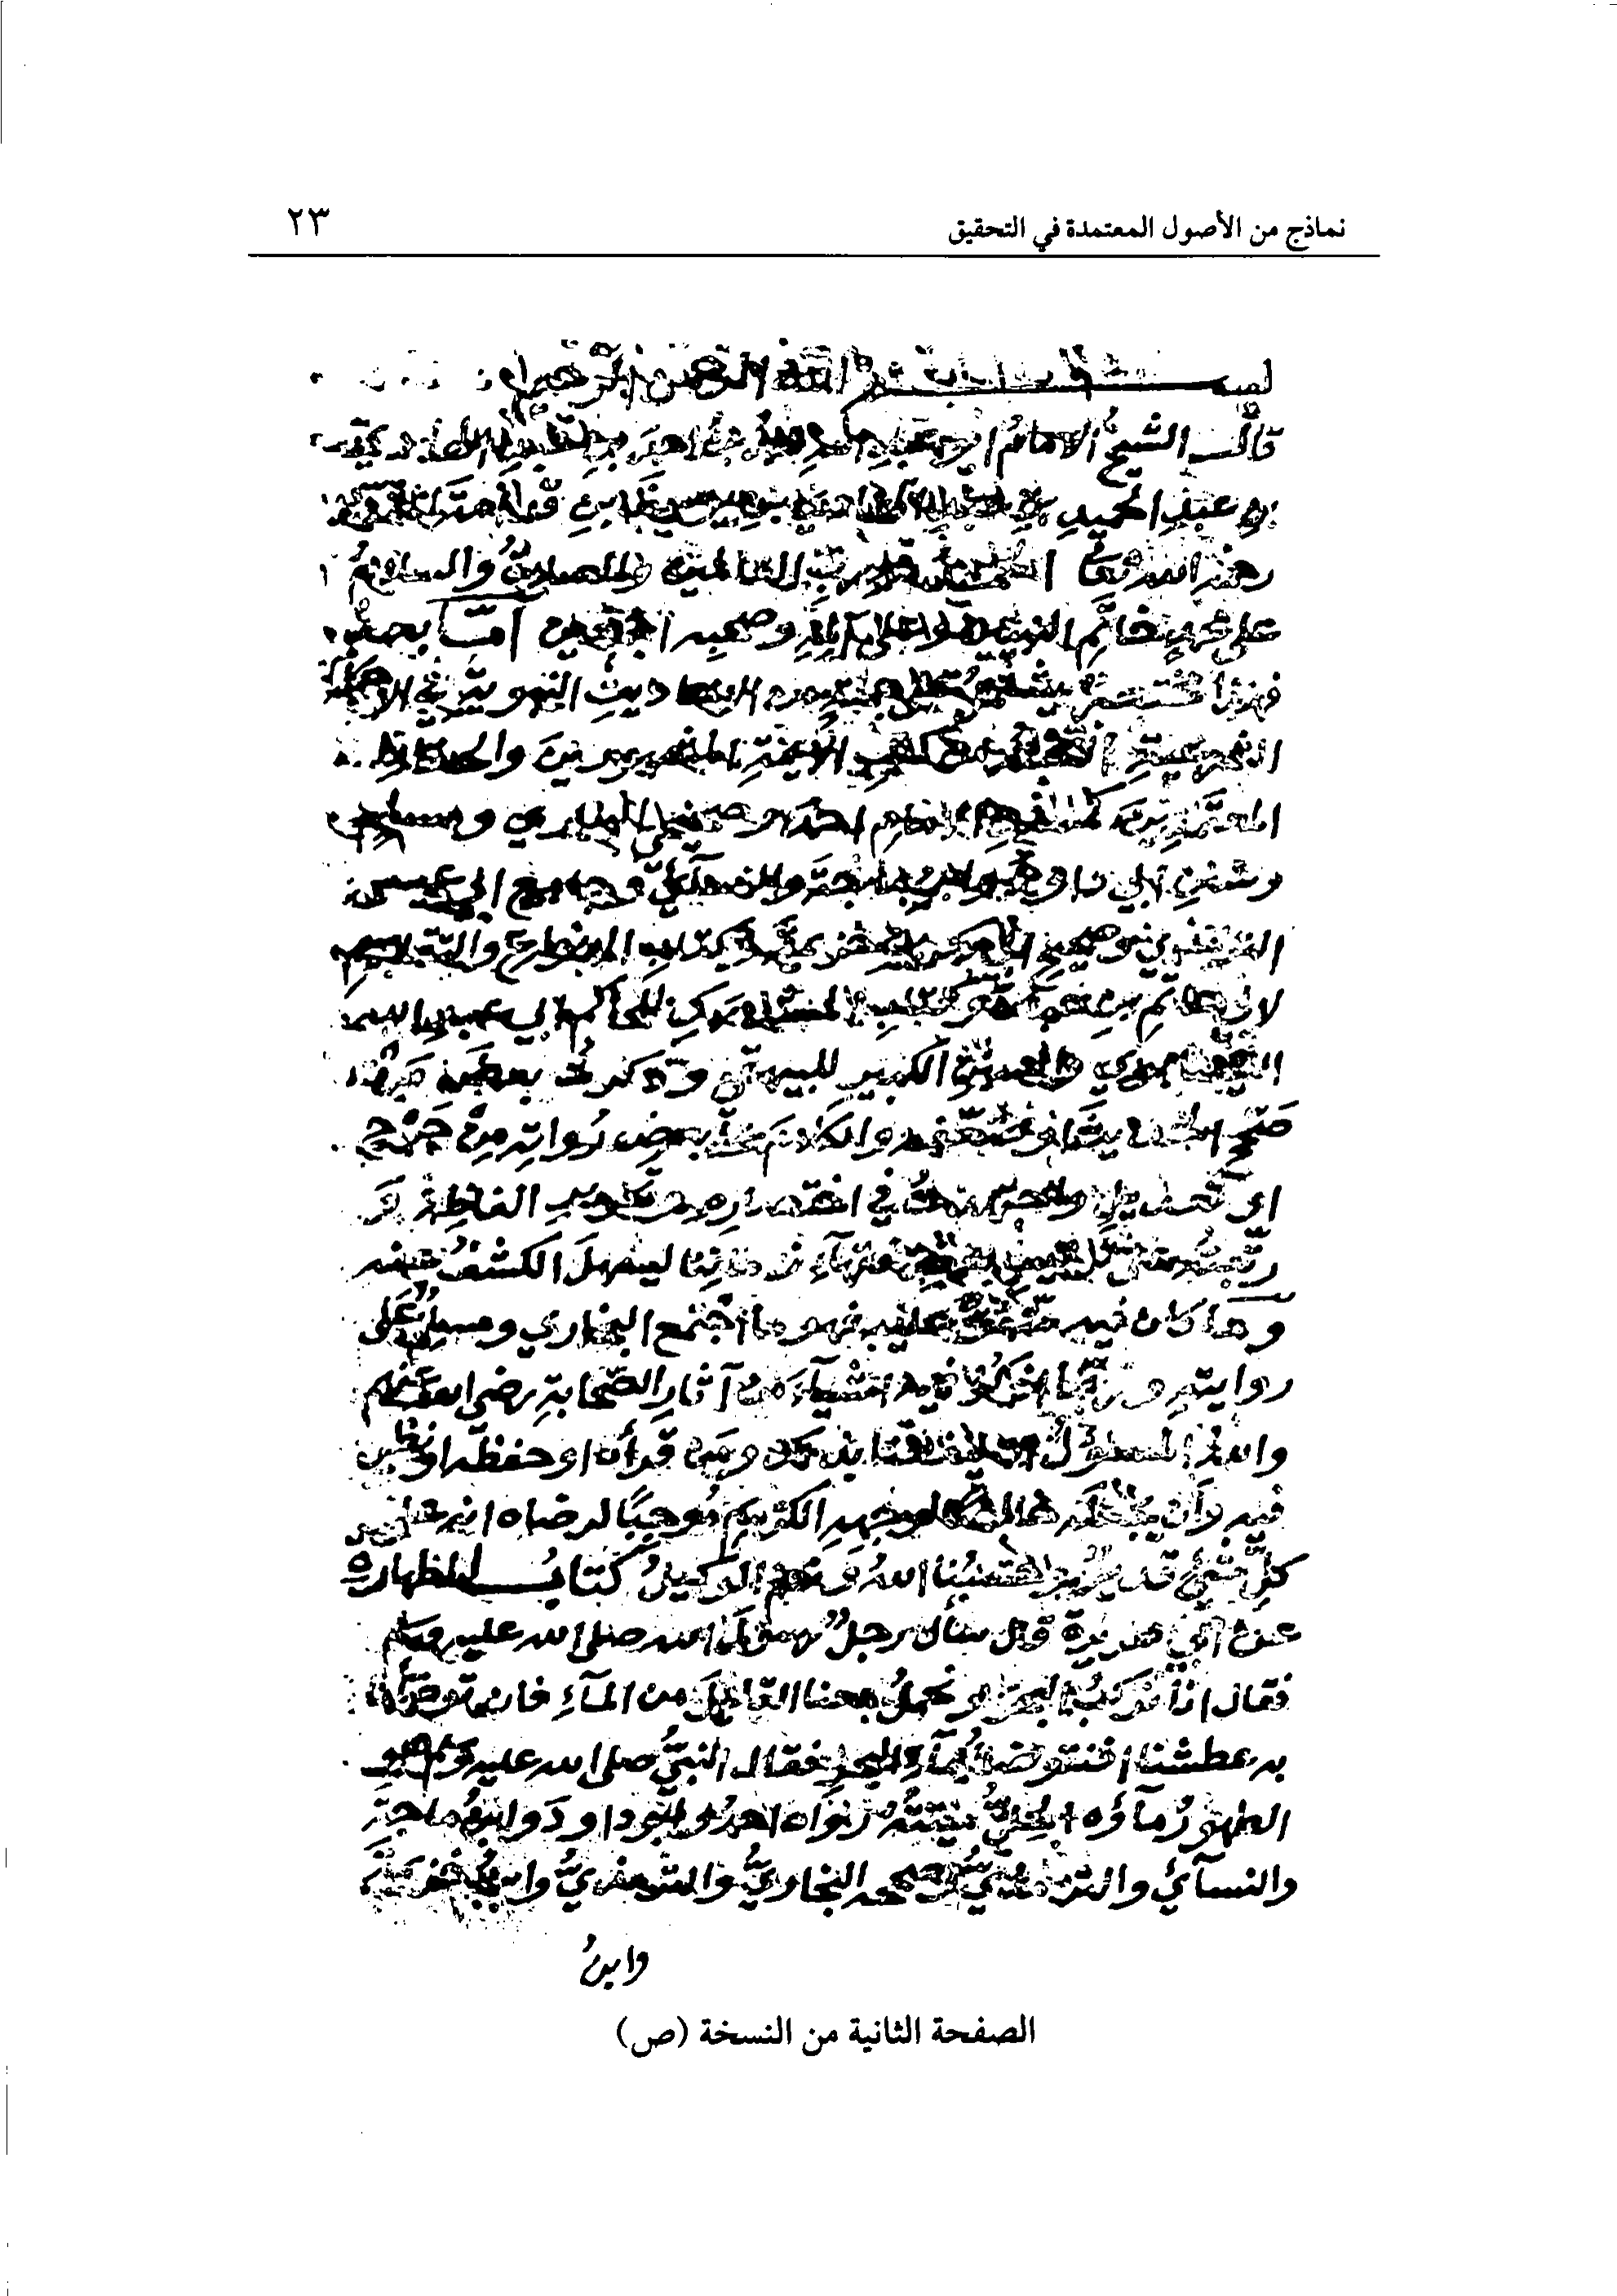 نماذج من الأصول المعتمدة في التحقيق ٢٣
الله الرحمن الرحيم
قال الشيخ الامامُ ابو عبدِ الله محمد بن احمدَ بن
بن عبدِ الحميدِ بن قدامة
رحمه الله الحمد لله ربِّ العالمين والصلاةُ والسلامُ
على محمدٍ خاتمِ النبيين وعلى آلِهِ وصحبِه اجمعين امّا بعد
فهذا مختصر يشتمل على من الاحاديثِ النبويةِ في الاحكام
الشرعيةِ الأئمةِ المشهورينَ والحفاظ
المعتمدين كمسند الامام احمد وصحيحي البخاري ومسلم
وسننِ ابي داود وابن ماجة والنسائيّ وجامع ابي عيسى
الترمذي وصحيح ابي بكر بن خزيمة وكتابِ الانواع والتقاسيم
لابي حاتم بن وكتاب المستدركِ للحاكم ابي عبد الله
النيسابوري والسنن الكبير للبيهقي وذكرت بعض من
صحح الحديث او ضعفه والكلام على بعض رُواتِه مِنْ جرح
او تعديل واجتهدت في اختصاره وتحرير الفاظِه
ورتّبتُه على ترتيب بعض فقهاءِ زماننا ليسهلَ الكشفُ منه
وما كان فيه متفق عليه فهو ما اجتمع البخاري ومسلم على
روايته وربّما اذكر فيه اشياءَ من آثارِ الصّحابةِ رضي الله عنهم
والله المسئولُ ان ينفعنا بذلك ومن قرأه او حفظه او نظر
فيه وان يجعله خالصا لوجهه الكريم مُوجبًا لرضاه انه على
كلِّ شيءٍ قدير حسبُنا اللهُ ونعم الوكيلُ كتابُ الطهارة
عن ابي هريرة قال سأل رجلٌ رسولَ الله صلى الله عليه وسلم
فقال انّا نركبُ البحرَ ونحملُ معنا القليلَ من المآءِ فان توضأنا
به عطشنا افنتوضأ بمآءِ البحرِ فقال النبيُّ صلى الله عليه وسلم هو
الطهورُ مآؤه الحلُّ ميتتُه رَواه احمدُ وابوداودَ وابنُ ماجة
والنسآئيُ والترمذيُّ وصححه البخاريُّ والترمذيُّ وابنُ خزيمة
وابنُ
الصفحة الثانية من النسخة (ص)